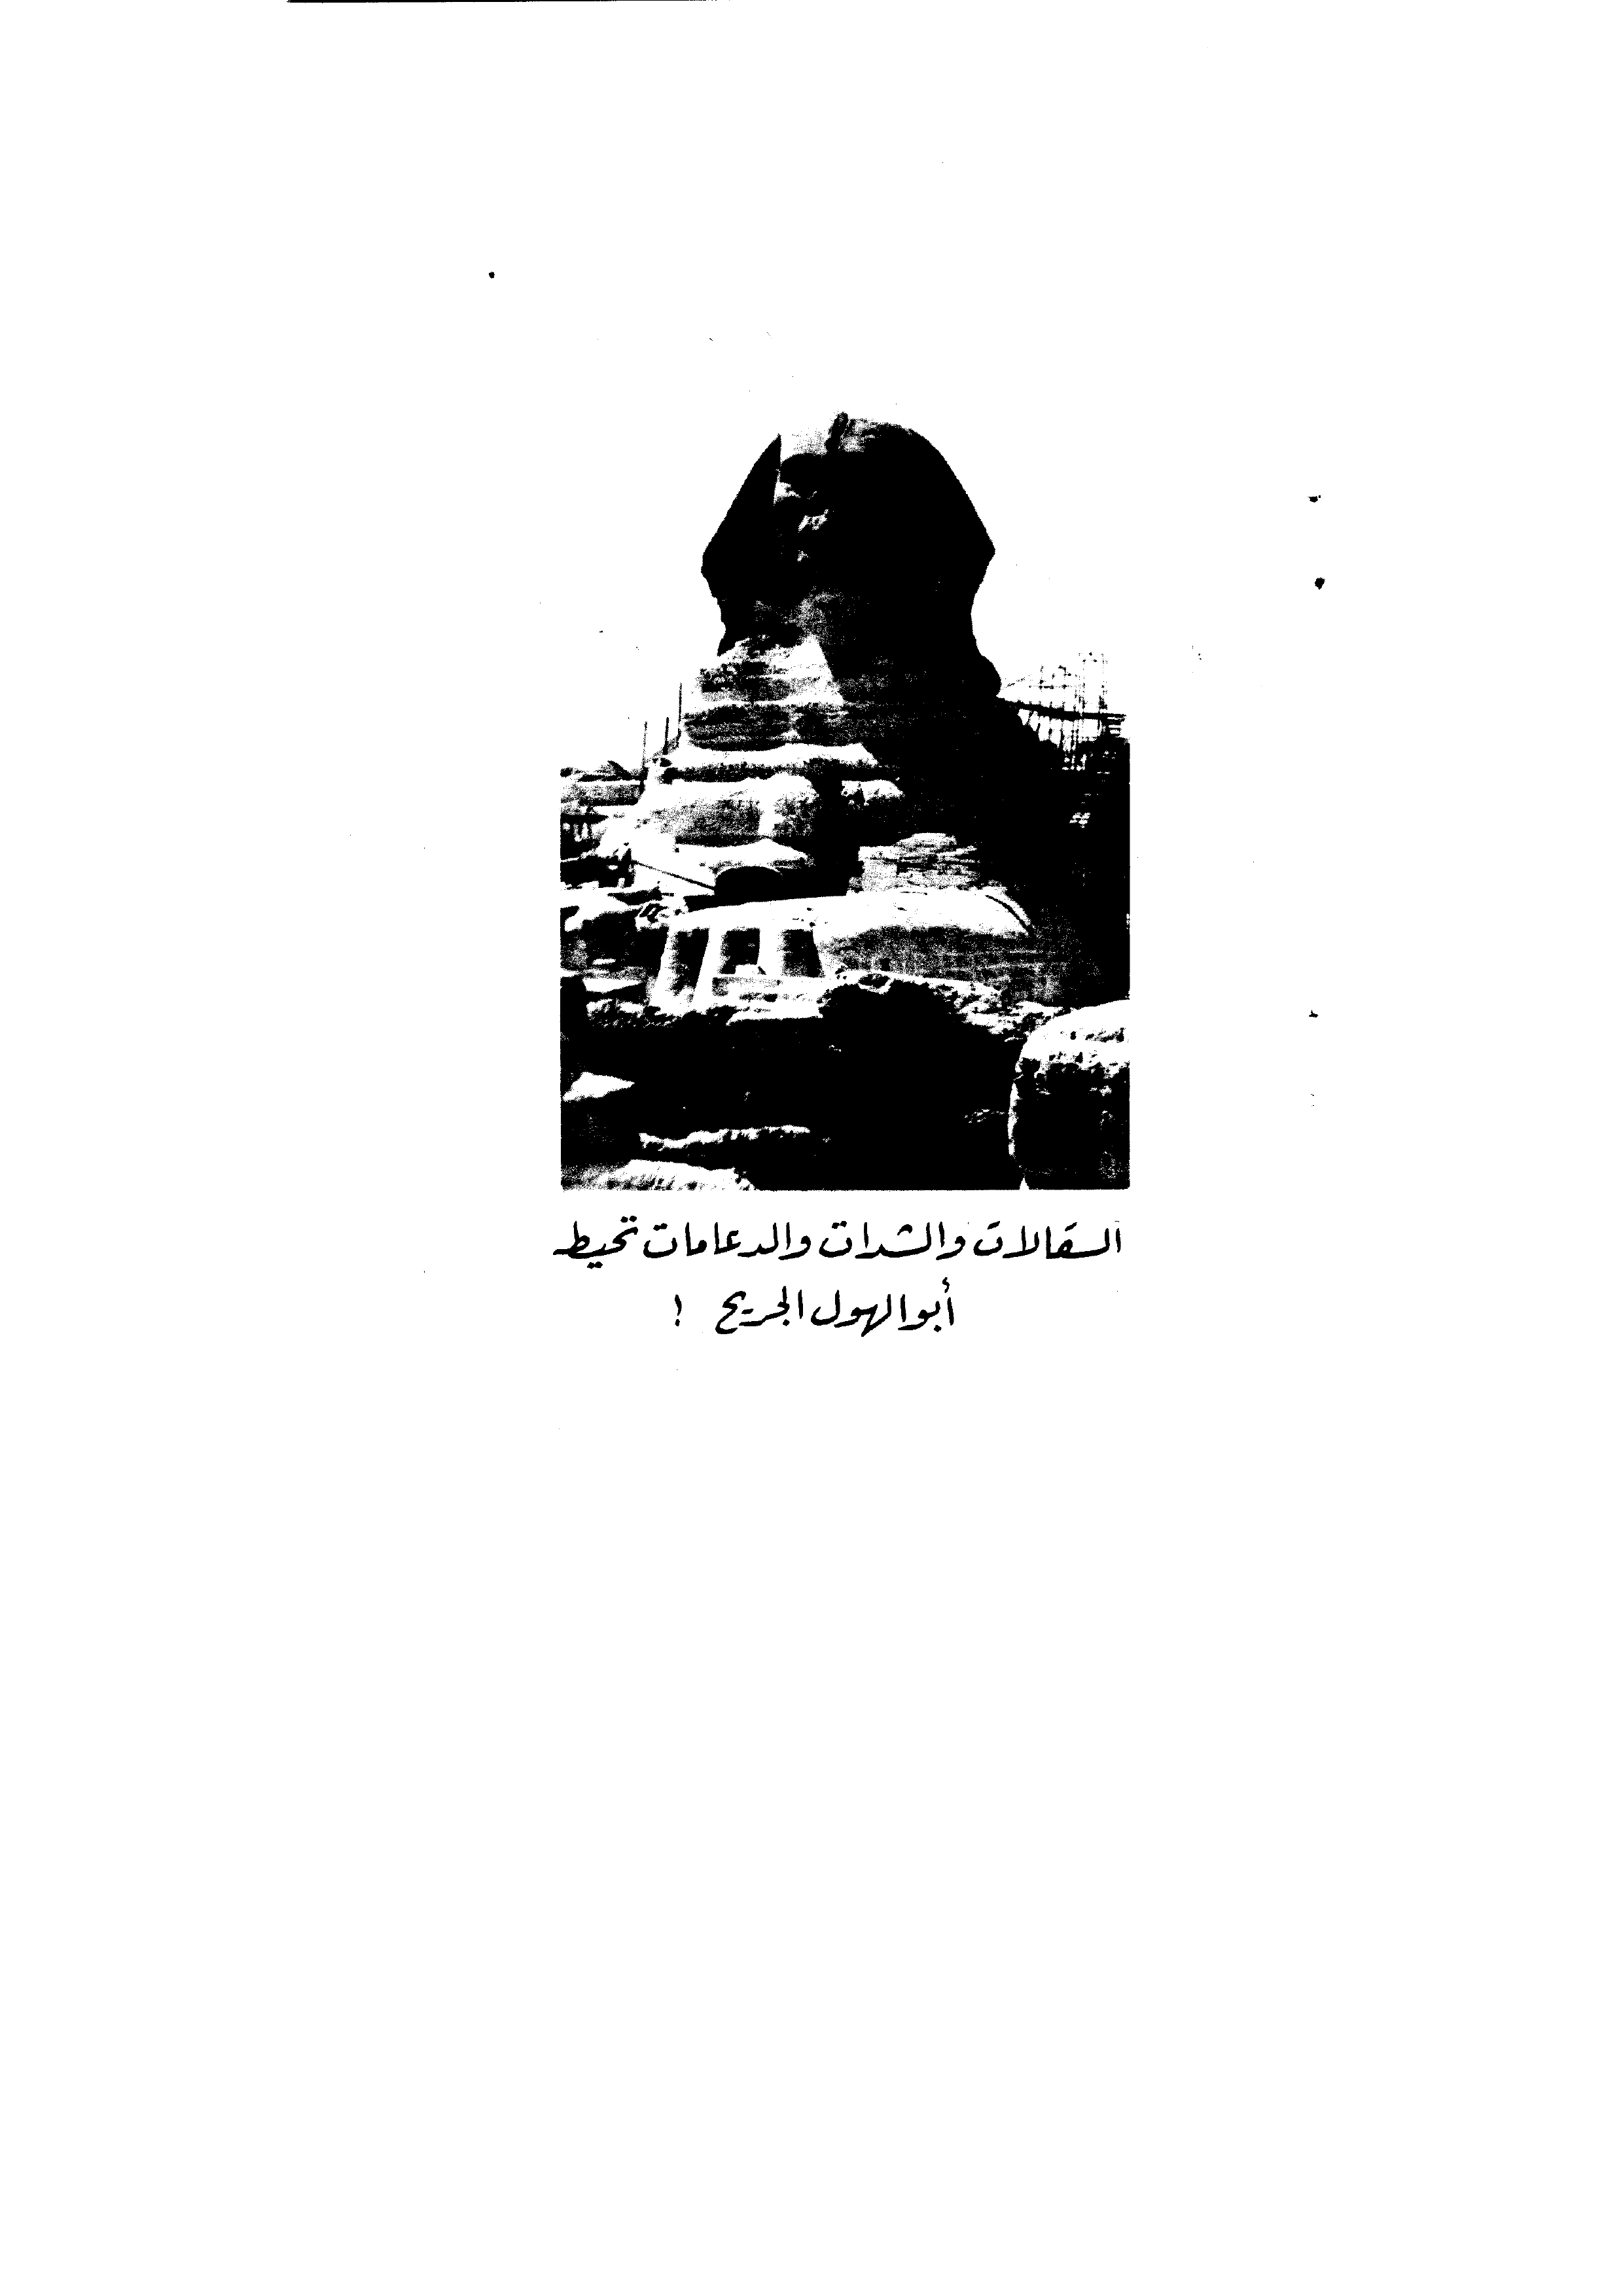 السقالات والشدات والدعامات تحيط
أبو الهول الجريح !